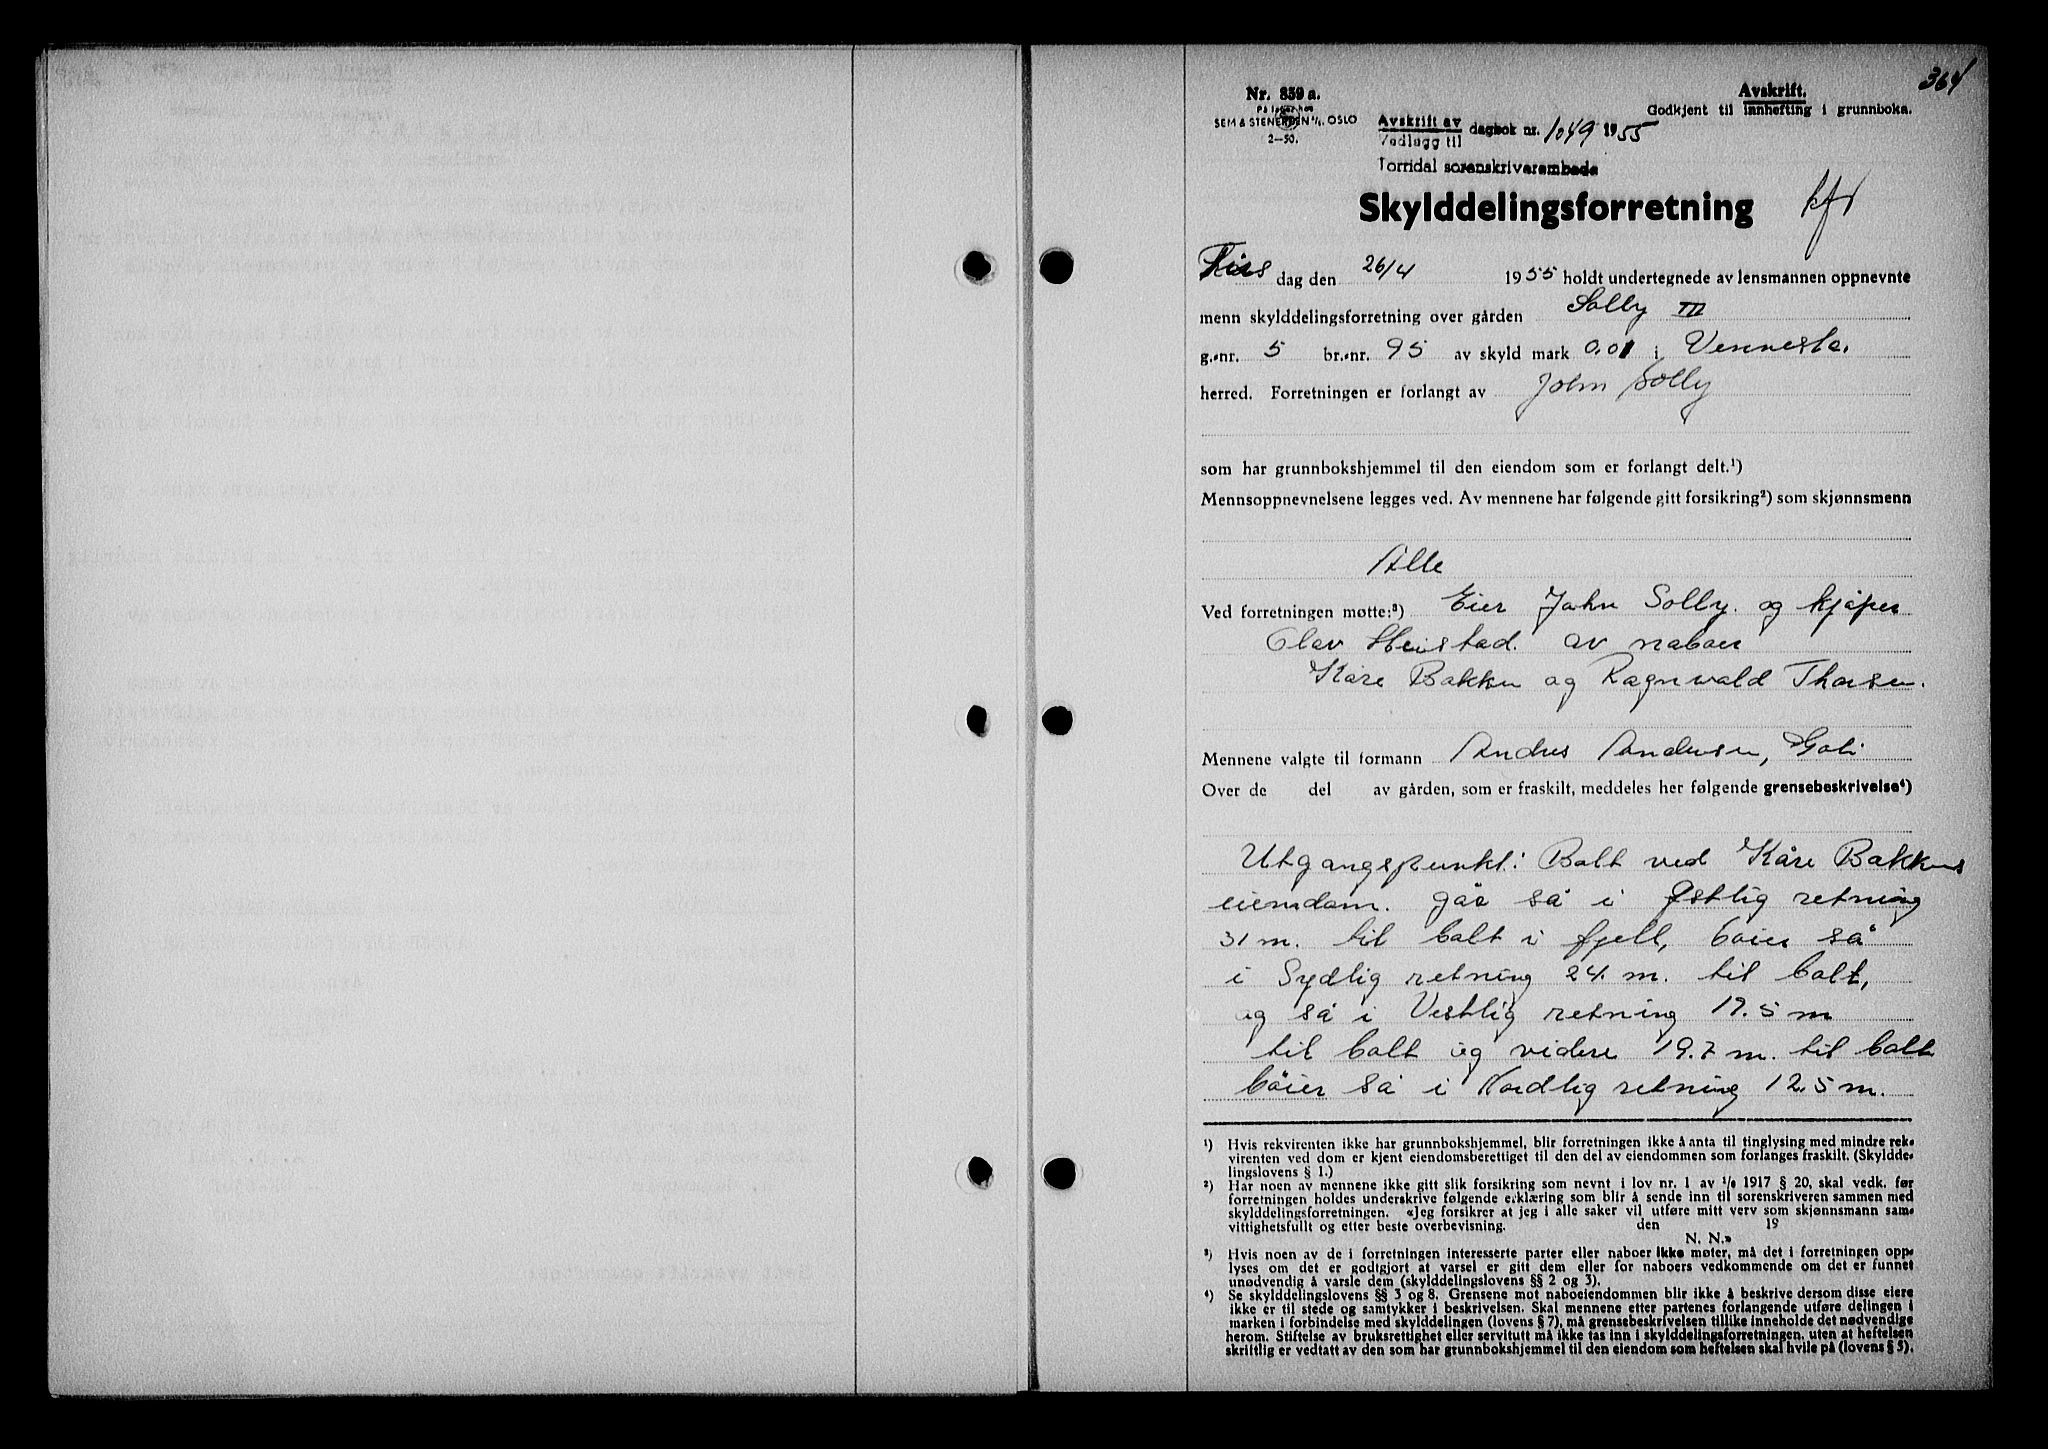 364
Nr. 859 a.
På lager hos
SEM & STENERSEN A/S, OSLO
2—50.
Avskrift.
Godkjent til innhefting i grunnboka.
Avskrift av
Vedlegg til
dagbok nr. 1049 1955
Torridal sorenskriverembede
Skylddelingsforretning
Tirs dag den 26/4 1955 holdt undertegnede av lensmannen oppnevnte
menn skylddelingsforretning over gården Solby III
g.-nr. 5 br.-nr. 95 av skyld mark 0.01 i Vennesla
herred. Forretningen er forlangt av John Solby
som har grunnbokshjemmel til den eiendom som er forlangt delt.¹)
Mennsoppnevnelsene legges ved. Av mennene har følgende gitt forsikring²) som skjønnsmenn
Alle
Ved forretningen møtte:³) Eier John Solby. og kjøper
Olav Heistad. av naboer
Kåre Bakken og Ragnvald Thorsen.
Mennene valgte til formann Andres Andersen,
Over de del av gården, som er fraskilt, meddeles her følgende grensebeskrivelse⁴)
Utgangspunkt: Bolt ved Kåre Bakkens
eiendom. går så i Østlig retning
31 m. til bolt i fjell, bøier så
i Sydlig retning 24. m. til bolt,
og så i Vestlig retning 17.5 m
til bolt og videre 19.7 m. til bolt
bøier så i Nordlig retning 12.5 m.
¹) Hvis rekvirenten ikke har grunnbokshjemmel, blir forretningen ikke å anta til tinglysing med mindre rek-
virenten ved dom er kjent eiendomsberettiget til den del av eiendommen som forlanges fraskilt. (Skyldde-
lingslovens § 1.)
²) Har noen av mennene ikke gitt slik forsikring som nevnt i lov nr. 1 av 1/6 1917 § 20, skal vedk. før
forretningen holdes underskrive følgende erklæring som blir å sende inn til sorenskriveren sammen med
skylddelingsforretningen. «Jeg forsikrer at jeg i alle saker vil utføre mitt verv som skjønnsmann sam-
vittighetsfullt og etter beste overbevisning. den 19
N. N.»
³) Hvis noen av de i forretningen interesserte parter eller naboer ikke møter, må det i forretningen opp-
lyses om det er godtgjort at varsel er gitt dem eller for naboers vedkommende om det er funnet
unødvendig å varsle dem (skylddelingslovens §§ 2 og 3).
⁴) Se skylddelingslovens §§ 3 og 8. Grensene mot naboeiendommen blir ikke å beskrive dersom disse eiere
ikke er til stede og samtykker i beskrivelsen. Skal mennene etter partenes forlangende utføre delingen i
marken i forbindelse med skylddelingen (lovens § 7), må grensebeskrivelsen tillike inneholde det nødvendige
herom. Stiftelse av bruksrettighet eller servitutt må ikke tas inn i skylddelingsforretningen, uten at heftelsen
skriftlig er vedtatt av den som har grunnbokshjemmel til den eiendom som heftelsen skal hvile på (lovens § 5).